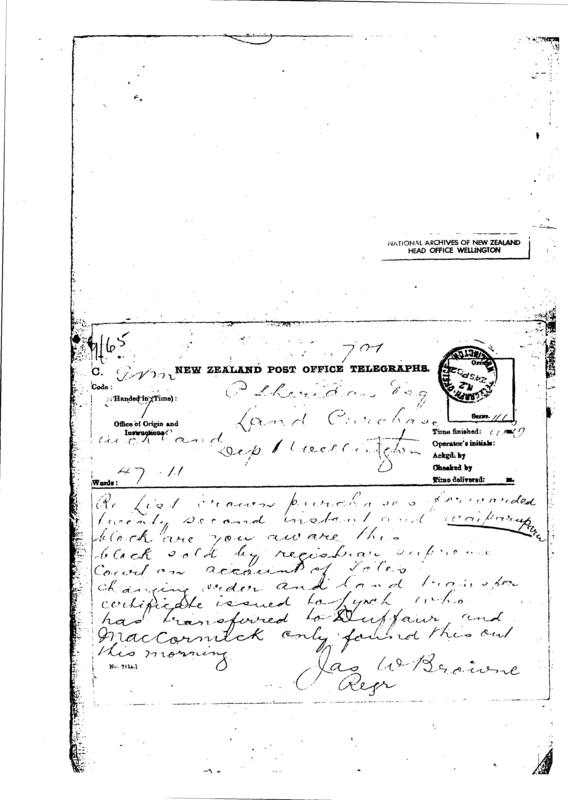 NATIONAL ARCHIVES OF NEW ZEALAND
HEAD OFFICE WELLINGTON
9/65
701
C. NEW ZEALAND POST OFFICE TELEGRAPHS.
Code:
P Sheridan Esq
Handed in (Time):
Land Purchase
Office of Origin and
Instructions:
Dep Wellington
Time finished:
Operator's initials:
Ackgd. by
Checked by
Words: 47
Time delivered: m.
Re List crown purchases forwarded
twenty second instant and waiparupara
block are you aware this
block sold by registrar supreme
Court on account of Toles
charging order and land transfer
certificate issued to Lynch who
has transferred to Duffaur and
MacCormick only found this out
this morning
Jas W Browne
Regr